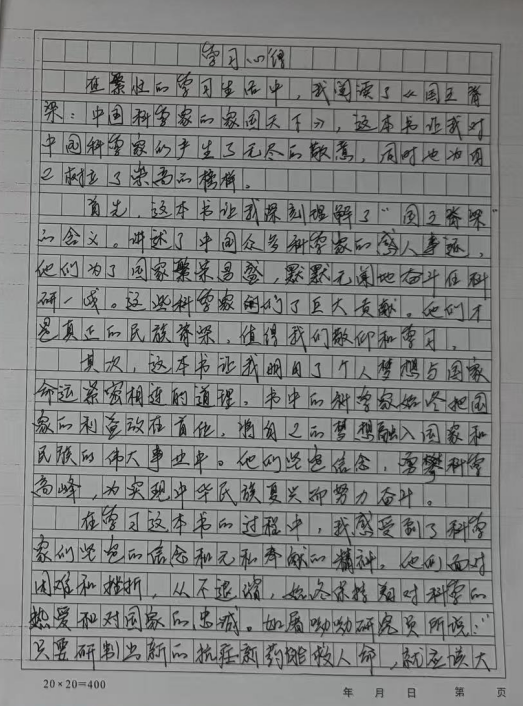 学习心得
在繁忙的学习生活中，我阅读了《国之脊
梁：中国科学家的家国天下》，这本书让我对
中国科学家的产生了无尽的敬意，同时也为自
己树立了崇高的榜样。
首先，这本书让我深刻理解了“国之脊梁”
的含义。讲述了中国众多科学家的感人事迹，
他们为了国家繁荣昌盛，默默无闻地奋斗在科
研一线。这些科学家们了巨大贡献。他们才
是真正的民族脊梁，值得我们敬仰和学习。
其次，这本书让我明白了个人梦想与国家
命运紧密相连的道理。书中的科学家始终把国
家的利益放在首位，将自己的梦想融入国家和
民族的伟大事业中。他们坚定信念，勇攀科学
高峰，为实现中华民族复兴而努力奋斗。
在学习这本书的过程中，我感受到了科学
家们坚定的信念和无私奉献的精神。他们面对
困难和挫折，从不退缩，始终保持着对科学的
热爱和对国家的忠诚。如屠呦呦研究员所说：“
只要研制出新的抗疟新药能救人命，就应该大
20×20=400
年 月 日 第 页